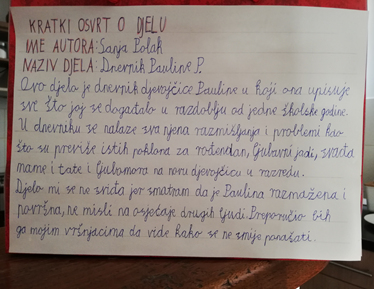 KRATKI OSVRT O DJELU
IME AUTORA: Sanja Polak
NAZIV DJELA: Dnevnik Pauline P.
Ovo djelo je dnevnik djevojčice Pauline u koji ona upisuje
sve što joj se događalo u razdoblju od jedne školske godine.
U dnevniku se nalaze sva njena razmišljanja i problemi kao
što su previše istih poklona za rođendan, ljubavni jadi, svađa
mame i tate i ljubomora na novu djevojčicu u razredu.
Djelo mi se ne sviđa jer smatram da je Paulina razmažena i
površna, ne misli na osjećaje drugih ljudi. Preporučio bih
ga mojim vršnjacima da vide kako se ne smije ponašati.